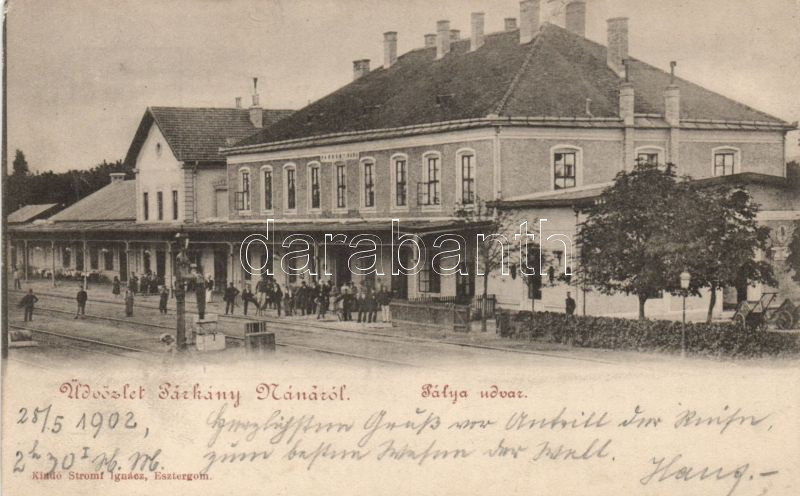 PÁRKÁNY NÁNA
darabanth
Üdvözlet Párkány Nánáról.
Pálya udvar.
25/5 1902,
2h 30 N. M.
Herzlichsten Gruß vor Antritt der Reise,
zum besten Wesen der Welt.
Hans.-
Kiadó Stromf Ignácz, Esztergom.